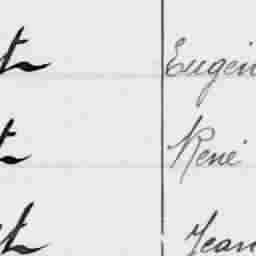 t Eugèn
t René
t Jean